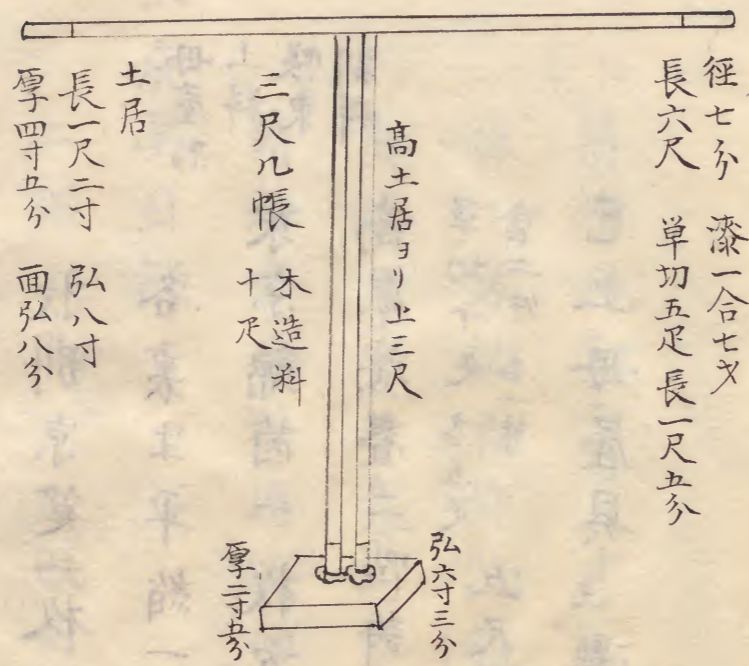 徑七分　漆一合七夕
長六尺　単切五疋　長一尺五分
髙土居ヨリ上三尺
三尺几帳　木造料
十疋
土居
長一尺二寸　弘八寸
厚四寸五分　面弘八分
弘六寸三分
厚二寸五分